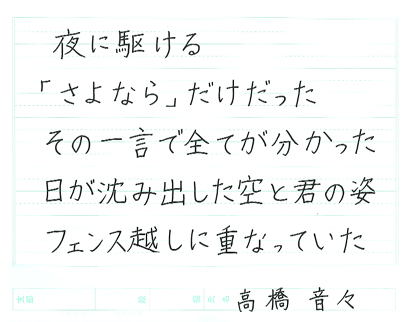 夜に駆ける
「さよなら」だけだった
その一言で全てが分かった
日が沈み出した空と君の姿
フェンス越しに重なっていた
高橋音々